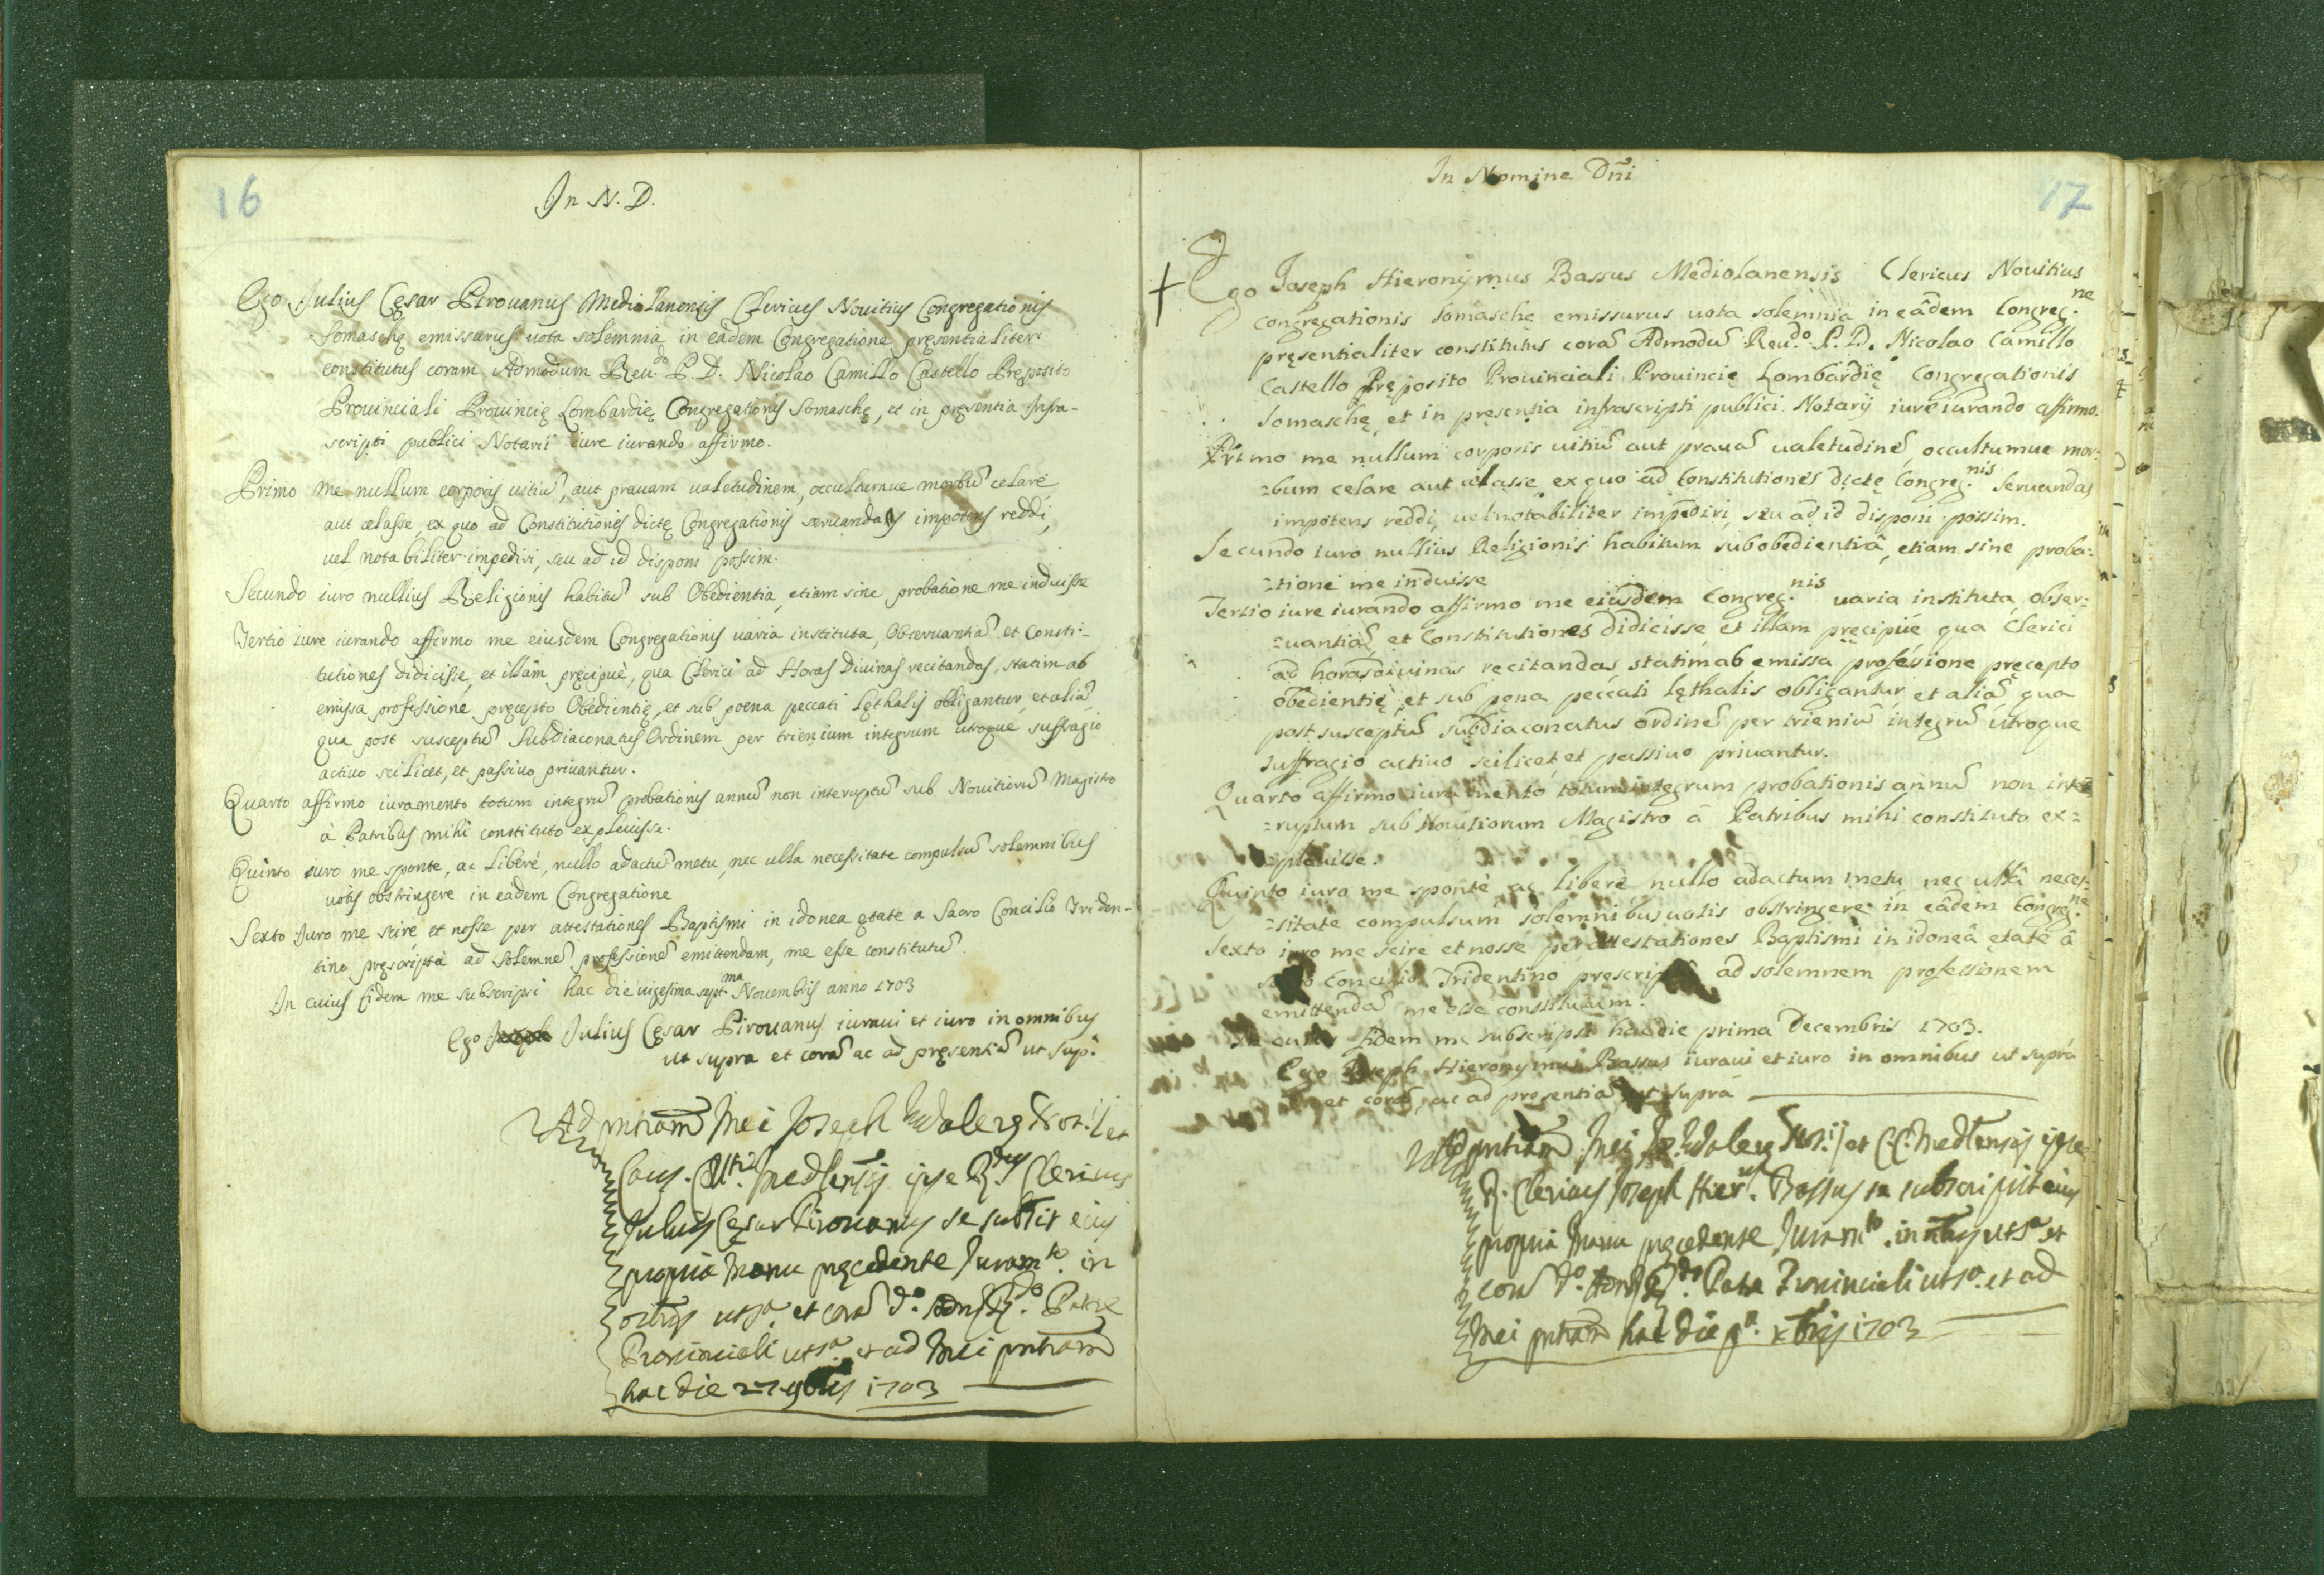 16
In N. D.
Ego Julius Cęsar Pirouanus Mediolanensis Clericus Nouitius Congregationis
Somaschę emissurus uota solemnia in eadem Congregatione pręsentialiter
constitutus coram Admodum Reu.do P. D. Nicolao Camillo Castello Pręposito
Prouinciali Prouincię Lombardię Congregationis Somaschę, et in pręsentia Infra-
scripti publici Notarii iure iurando affirmo.
Primo me nullum corporis uitiũ, aut prauam ualetudinem, occultumue morbũ celare
aut celasse, ex quo ad Constitutiones dictę Congregationis seruandas impotens reddi,
uel notabiliter impediri, seu ad id disponi possim.
Secundo iuro nullius Religionis habitũ sub Obedientia, etiam sine probatione me induisse
Tertio iure iurando affirmo me eiusdem Congregationis uaria instituta, Obseruantiã, et Consti-
tutiones didicisse, et illam pręcipuè, qua Clerici ad Horas Diuinas recitandas, statim ab
emissa professione pręcepto Obedientię, et sub poena peccati Lęthalis obligantur, et aliã,
qua post susceptũ Subdiaconatus Ordinem per trienium integrum utroque suffragio
actiuo scilicet, et passiuo priuantur.
Quarto affirmo iuramento totum integrũ probationis annũ non interuptũ sub Nouitiorũ Magistro
à Patribus mihi constituto expleuisse.
Quinto iuro me sponte, ac liberè, nullo adactũ metu, nec ulla necessitate compulsũ solemnibus
uotis obstringere in eadem Congregatione
Sexto Iuro me scire et nosse per attestationes Baptismi in idonea ętate a Sacro Concilio Triden-
tino pręscripta ad solemnẽ professionẽ emittendam, me esse constitutũ.
In cuius fidem me subscripsi hac die uigesima sept.ma Nouembris anno 1703
Ego Julius Cęsar Pirouanus iuraui et iuro in omnibus
ut supra et corã ac ad pręsentiã ut sup.a
Ad pntiam Mei Joseph Not.ij et
Caus. Mediensis ipse R.dus Clericus
Julius Cęsar Pirouanus se subsit eius
propria manu pręcedente Juram.to in
omibus ut s.a et corã d.o Adm R.do Patre
Prouinciali ut s.a et ad Mei pntiam
hac die 27 9bris 1703
17
In Nomine Dñi
Ego Joseph Hieronymus Bassus Mediolanensis Clericus Nouitius
Congregationis Somaschę emissurus uota solemnia in eâdem Congreg.ne
pręsentialiter constitutus corã Admodũ Reu.do P. D. Nicolao Camillo
Castello Pręposito Prouinciali Prouincię Lombardię Congregationis
Somaschę, et in pręsentia infrascripti publici Notarij iure iurando affirmo.
Primo me nullum corporis uitiũ aut prauã ualetudinẽ, occultumue mor-
=bum celare aut celasse ex quo ad Constitutiones dictę Congreg.nis seruandas
impotens reddi, uel notabiliter impediri, seu ad id disponi possim.
Secundo iuro nullius Religionis habitum sub obedientiâ, etiam sine proba=
=tione me induisse
Tertio iure iurando affirmo me eiusdem Congreg.nis uaria instituta, obser=
=uantiã, et Constitutiones didicisse et illam pręcipue qua Clerici
ad horas diuinas recitandas statim ab emissa profesione pręcepto
obedientię, et sub pęna peccati lęthalis obligantur, et aliã qua
post susceptũ subdiaconatus ordinẽ per trieniũ integrũ utroque
suffragio actiuo scilicet, et passiuo priuantur.
Quarto affirmo iuramento totum integrum probationis annũ non inte=
=ruptum sub Nouitiorum Magistro â Patribus mihi constituto ex=
=pleuisse.
Quinto iuro me spontè ac liberè nullo adactum metu nec ullâ neces=
=sitate compulsum solemnibus uotis obstringere in eâdem Congreg.ne
Sexto iuro me scire et nosse per attestationes Baptismi in idoneâ etate â
sacro Concilio Tridentino prescriptâ ad solemnem professionem
emittendã me esse constitutum.
In cuius fidem me subscripsi hac die prima Decembris 1703.
Ego Joseph Hieronymus Bassus iuraui et iuro in omnibus ut suprà
et corã, ac ad presentiã ut suprà
Ad pntiam Mei Not.ij et CC. Medlensis ipse
R. Clericus Joseph Hier.us Bassus se subscripsit eius
propria manu pręcedente Juram.to in omibus ut s.a et
corã d.o Adm R.do Patre Prouinciali ut s.a et ad
Mei pntiam hac die p.a xbris 1703